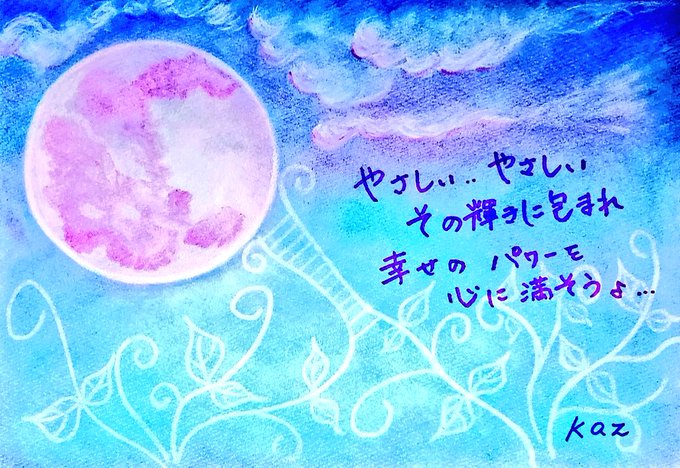 やさしい‥やさしい
その輝きに包まれ
幸せの パワーを
心に満そうよ…
kaz